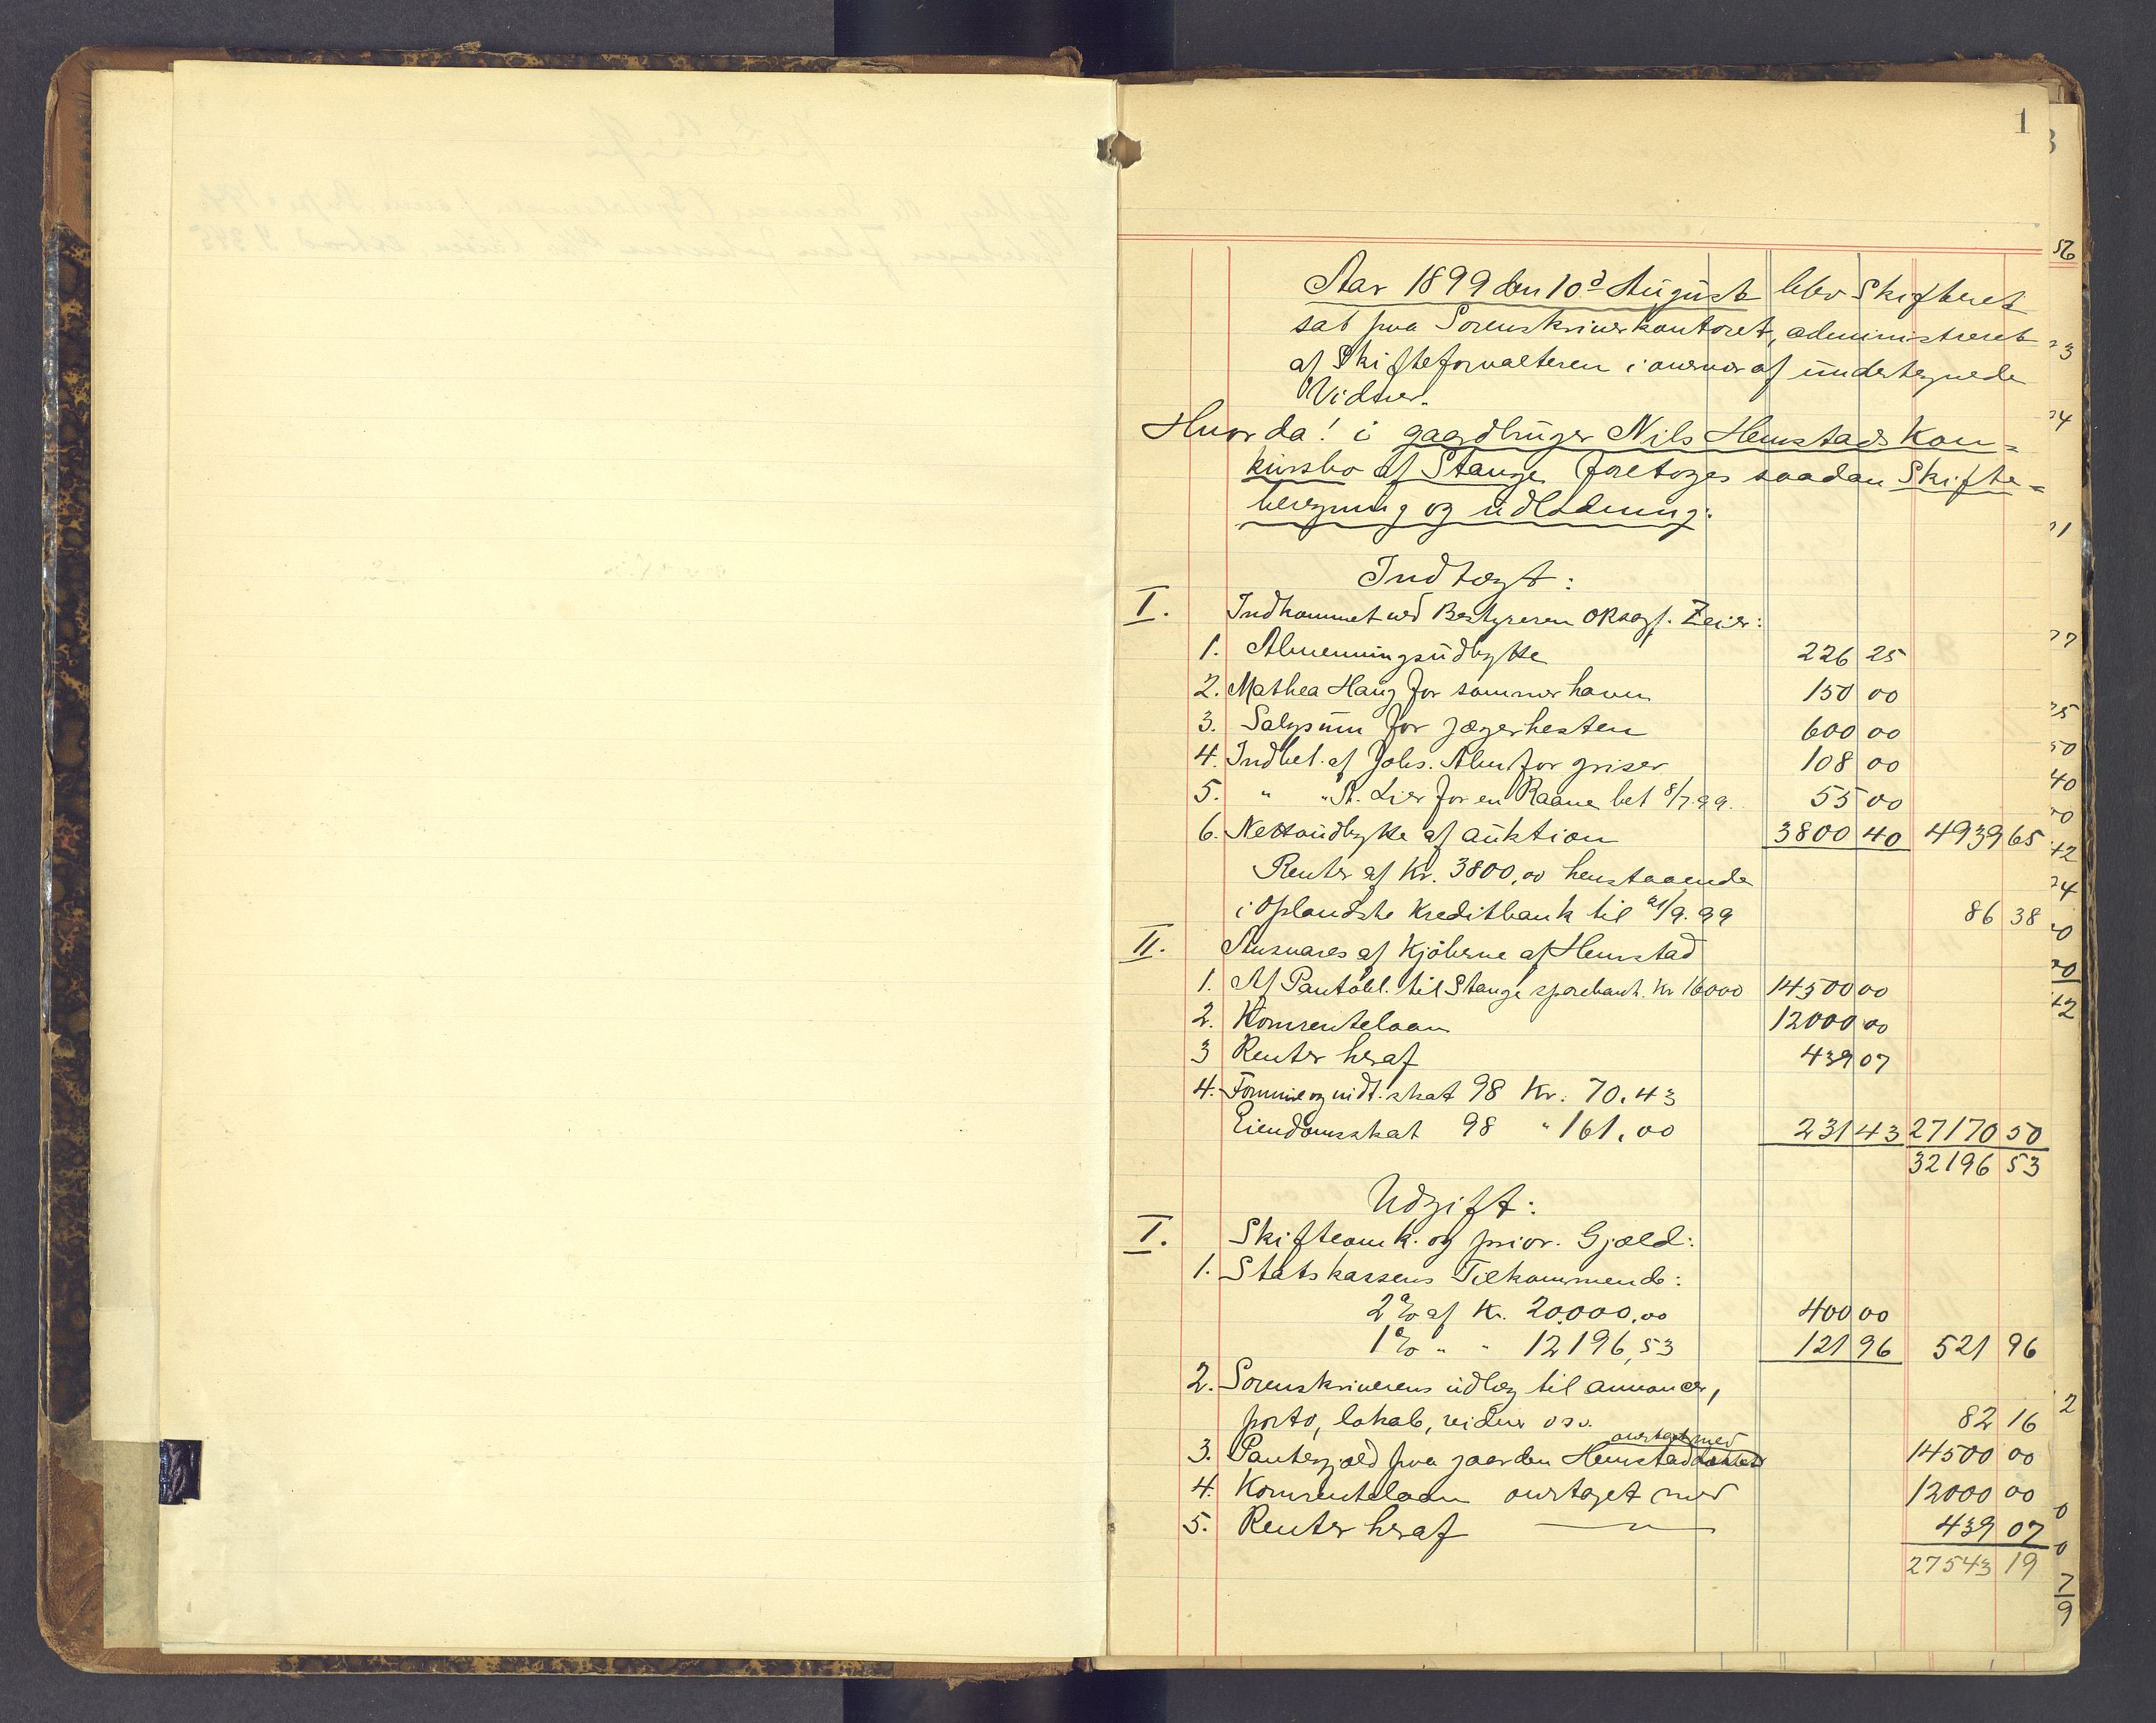 1
Aar 1899 den 10d August blev Skifteret
sat paa Sorenskriverkontoret, administreret
af Skifteforvalteren i overvær af undertegnede
Vidner.
Hvorda! i gaardbruger Nils Hemstads Kon=
kursbo af Stange foretoges saadan Skifte=
beregning og udlodning:
Indtægt:
I. Indkommet ved Bestyreren ORsagf. Zeier:
1. Almenningsudbytte 226 25
2. Mathea Haug for sommerhavn 150 00
3. Salgsum for jægerhesten 600 00
4. Indbet. af Johs. Alm for griser 108 00
5. " " St. Lier for en Raane bet 8/7.99. 55 00
6. Nettoudbytte af auktion 3800 40 4939 65
Renter af Kr. 3800,00 henstaaende
i Oplandske Kreditbank til 21/9.99 86 38
II. Ansvares af Kjøberne af Hemstad
1. Af Pantobl. til Stange sparebank. Kr 16000 14500 00
2. Kornrentelaan 12000 00
3 Renter heraf 439 07
4. Formue og indt. skat 98 Kr. 70.43
Eiendomsskat 98 " 161.00 231 43 27170 50
32196 53
Udgift:
I. Skifteomk. og prior. Gjæld:
1. Statskassens Tilkommende:
2% af Kr. 20.000,00 400 00
1% " " 12196,53 121 96 521 96
2. Sorenskriverens udlæg til annoncer,
porto, lokale, vidner osv. 82 16
overtaget med
3. Pantegjæld paa gaarden Hemstad 14500 00
4. Kornrentelaan overtaget med 12000 00
5. Renter heraf — " — 439 07
27543 19